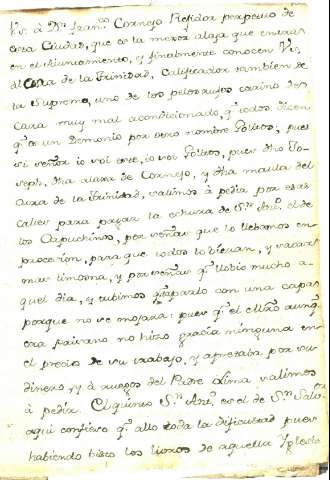 Vs. à Dn. Franco. Cornejo Regidor perpetuo de
esta Ciudad, que es la mejor alaja que entrar
en el Aiuntamiento, y finalmente conocen Vs.
Cura de la Trinidad, Calificador tambien de
la Suprema, uno de los
cara muy mal acondicionado, qe todos dicen
qe es un Demonio por otro nombre Politos, pues
si señor io soi ese, io soi Politos, pues dho Jo-
seph, dha alaxa de Cornejo, y dha maula del
Cura de la Trinidad, salimos à pedir por esas
calles para pagar la echura de Sn. Anto. el de
los Capuchinos, por señas que lo llebamos en
procesion, para que todos lo vieran, y sacar
mas limosna, y por señas qe llobio mucho a-
quel dia, y tubimos qe taparlo con una capa
porque no se mojara: pues qe el Mtro. aunqe
era paisano no hizo gracia ninguna en
el precio de su trabajo, y apretaba por su
dinero, y à ruegos del Padre Lima salimos
à pedir. El quinto Sn. Anto. es el de Sn.
aqui confieso qe allo toda la dificultad pues
habiendo bisto los livros de aquella Yglesia